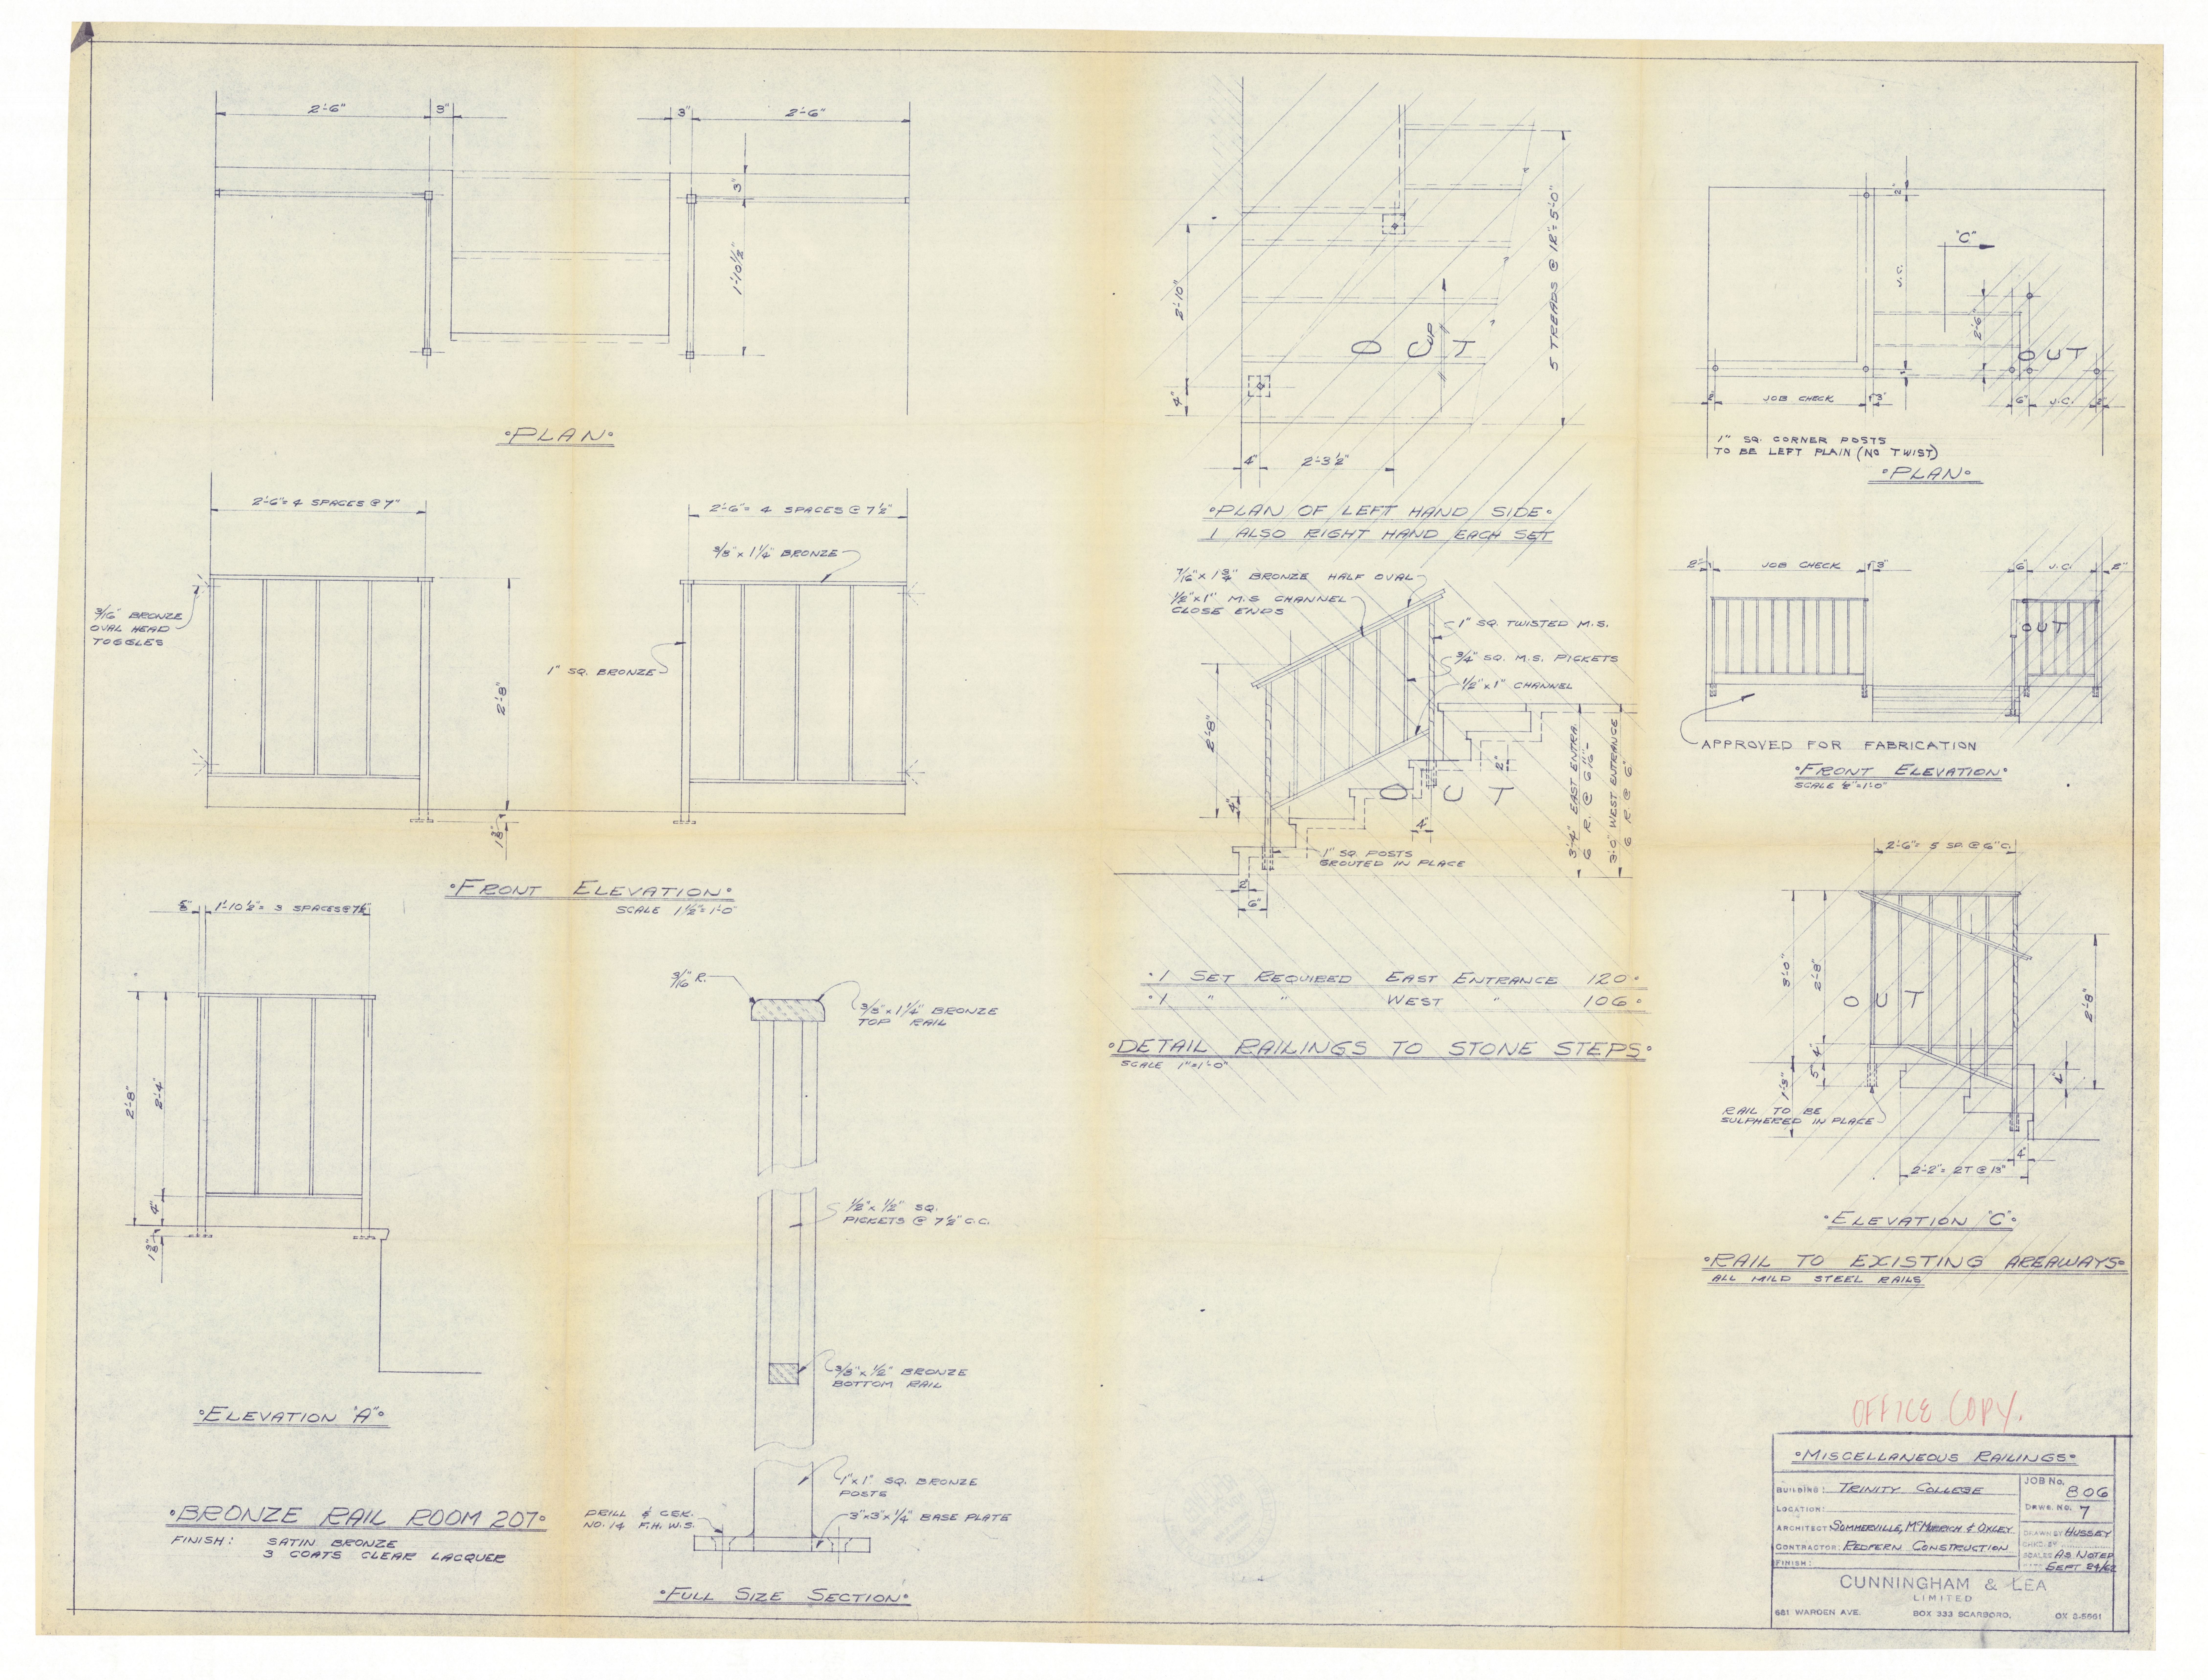 2'-6"
3"
3"
2'-6"
3"
1'-10½"
°PLAN°
2'-6"= 4 SPACES @ 7"
2'-6"= 4 SPACES @ 7½"
3/8" x 1¼" BRONZE
3/16" BRONZE
OVAL HEAD
TOGGLES
1" SQ. BRONZE
2'-8"
°FRONT ELEVATION°
SCALE 1½"=1'-0"
1'-10½"= 3 SPACES @ 7½"
2'-8"
2'-4"
4"
°ELEVATION "A"°
°BRONZE RAIL ROOM 207°
FINISH: SATIN BRONZE
3 COATS CLEAR LACQUER
3/16" R.
3/8" x 1¼" BRONZE
TOP RAIL
½" x ½" SQ.
PICKETS @ 7½" C.C.
3/8" x ½" BRONZE
BOTTOM RAIL
1" x 1" SQ. BRONZE
POSTS
DRILL & CSK.
NO. 14 F.H.W.S.
3" x 3" x ¼" BASE PLATE
°FULL SIZE SECTION°
2'-10"
4"
UP
OUT
5 TREADS @ 12"= 5'-0"
4"
2'-3½"
°PLAN OF LEFT HAND SIDE°
1 ALSO RIGHT HAND EACH SET
7/16" x 1¾" BRONZE HALF OVAL
½" x 1" M.S. CHANNEL
CLOSE ENDS
1" SQ. TWISTED M.S.
¾" SQ. M.S. PICKETS
½" x 1" CHANNEL
2'-8"
4"
OUT
2"
4"
1" SQ. POSTS
GROUTED IN PLACE
2"
6"
3'-4" EAST ENTRA.
3'-0" WEST ENTRANCE
6 R. @ 6"
°1 SET REQUIRED EAST ENTRANCE 120°
°1 " " WEST " 106°
°DETAIL RAILINGS TO STONE STEPS°
SCALE 1"=1'-0"
2"
J.C.
"C"
2'-6"
OUT
2"
JOB CHECK
3"
6"
J.C.
2"
1" SQ. CORNER POSTS
TO BE LEFT PLAIN (NO TWIST)
°PLAN°
2"
JOB CHECK
3"
6"
J.C.
2"
OUT
APPROVED FOR FABRICATION
°FRONT ELEVATION°
SCALE ½"=1'-0"
2'-6"= 5 SP. @ 6" C.
3'-0"
2'-8"
OUT
2'-8"
4"
5"
1'-3"
4"
RAIL TO BE
SULPHERED IN PLACE
4"
2'-2"= 2T @ 13"
°ELEVATION "C"°
°RAIL TO EXISTING AREAWAYS°
ALL MILD STEEL RAILS
OFFICE COPY.
°MISCELLANEOUS RAILINGS°
BUILDING: TRINITY COLLEGE
JOB No. 806
LOCATION:
DRWG. NO. 7
ARCHITECT: SOMMERVILLE, McMURRICH & OXLEY
DRAWN BY HUSSEY
CONTRACTOR: REDFERN CONSTRUCTION
CHKD. BY
SCALE: AS NOTED
FINISH:
SEPT 24/62
CUNNINGHAM & LEA
LIMITED
681 WARDEN AVE. BOX 333 SCARBORO, OX 8-5661